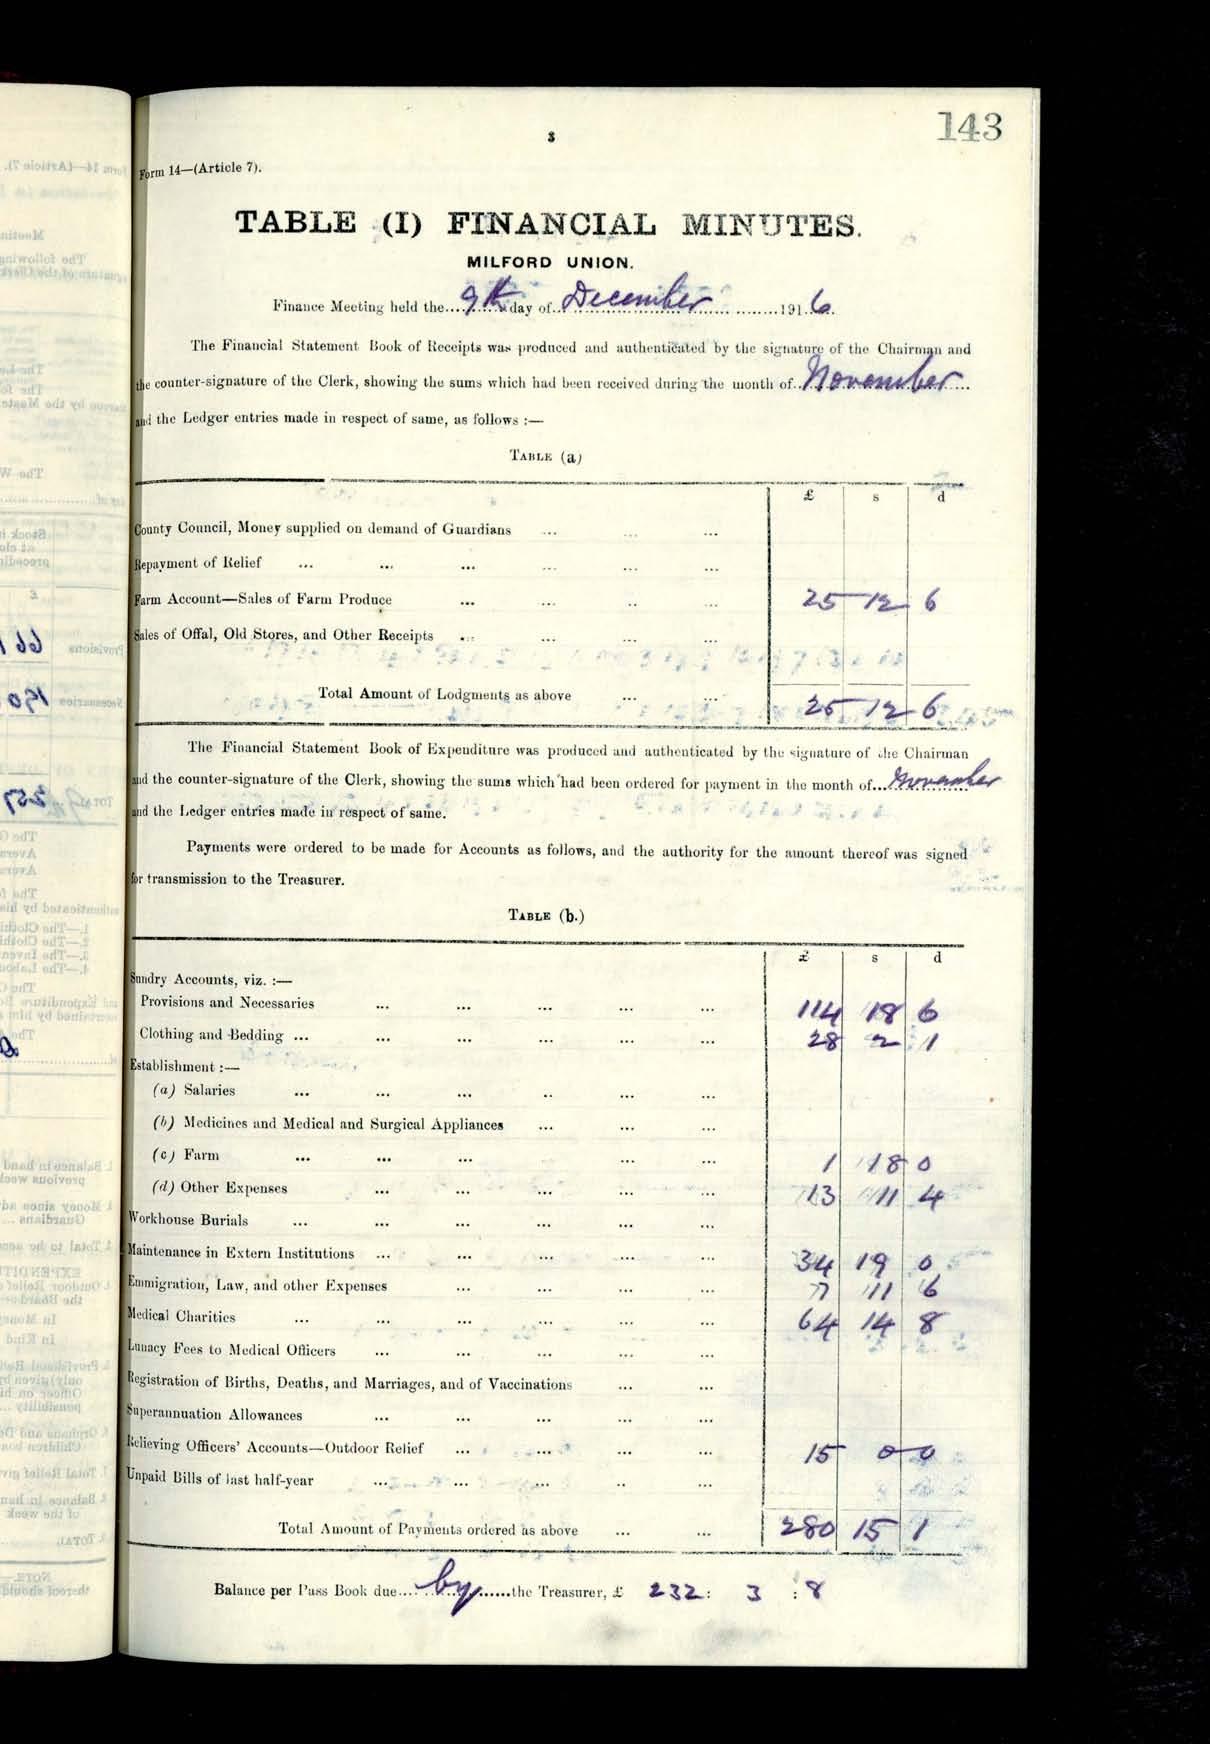 143
3
Form 14—(Article 7).
TABLE (I) FINANCIAL MINUTES.
MILFORD UNION.
Finance Meeting held the 9th day of December 1916.
The Financial Statement Book of Receipts was produced and authenticated by the signature of the Chairman and
the counter-signature of the Clerk, showing the sums which had been received during the month of November
and the Ledger entries made in respect of same, as follows :—
TABLE (a)
£ s d
County Council, Money supplied on demand of Guardians ... ... ...
Repayment of Relief ... ... ... ... ... ...
Farm Account—Sales of Farm Produce ... ... .. ... 25 12 6
Sales of Offal, Old Stores, and Other Receipts ... ... ... ...
Total Amount of Lodgments as above ... ... 25 12 6
The Financial Statement Book of Expenditure was produced and authenticated by the signature of the Chairman
and the counter-signature of the Clerk, showing the sums which had been ordered for payment in the month of November
and the Ledger entries made in respect of same.
Payments were ordered to be made for Accounts as follows, and the authority for the amount thereof was signed
for transmission to the Treasurer.
TABLE (b.)
£ s d
Sundry Accounts, viz. :—
Provisions and Necessaries ... ... ... ... ... 114 18 6
Clothing and Bedding ... ... ... ... ... ... 28 2 1
Establishment :—
(a) Salaries ... ... ... .. ... ...
(b) Medicines and Medical and Surgical Appliances ... ... ...
(c) Farm ... ... ... ... ... 1 18 0
(d) Other Expenses ... ... ... ... ... 13 11 4
Workhouse Burials ... ... ... ... ... ...
Maintenance in Extern Institutions ... ... ... ... ... 34 19 0
Emmigration, Law, and other Expenses ... ... ... ... 7 11 6
Medical Charities ... ... ... ... ... ... 64 14 8
Lunacy Fees to Medical Officers ... ... ... ... ...
Registration of Births, Deaths, and Marriages, and of Vaccinations ... ...
Superannuation Allowances ... ... ... ... ...
Relieving Officers' Accounts—Outdoor Relief ... ... ... ... 15 0 0
Unpaid Bills of last half-year ... ... ... .. ...
Total Amount of Payments ordered as above ... ... 280 15 1
Balance per Pass Book due by the Treasurer, £ 232 : 3 : 8